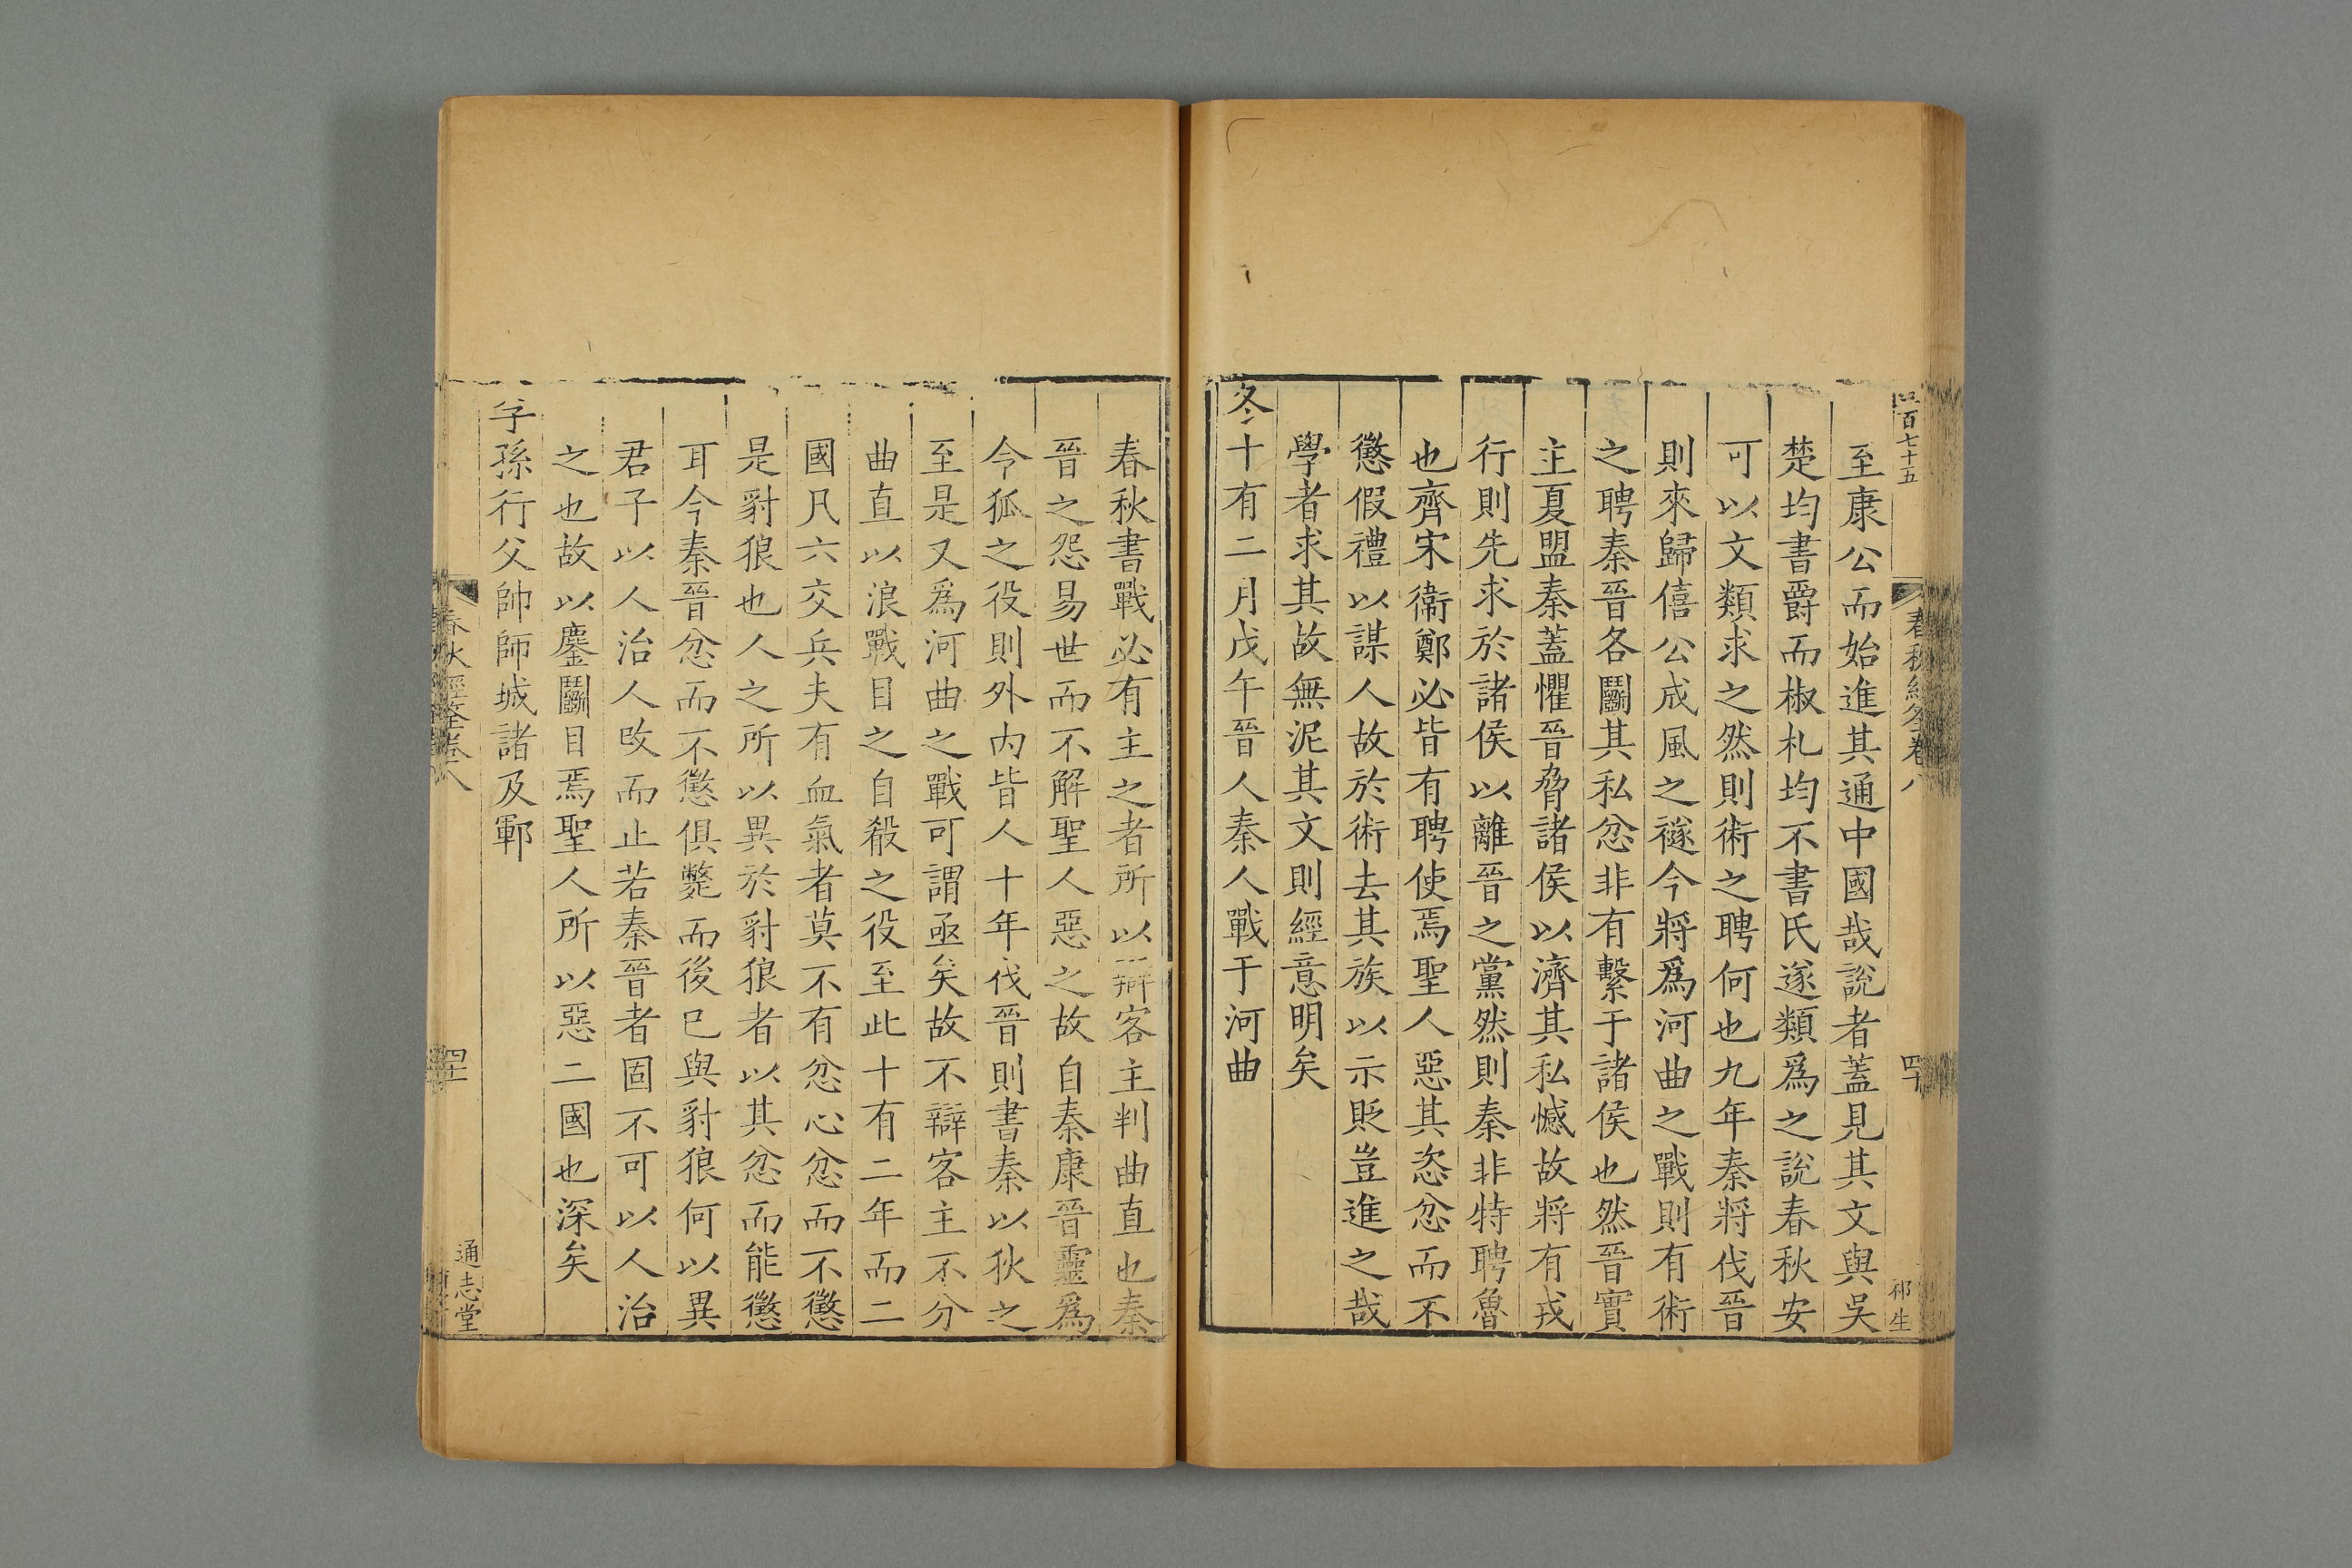 百七十五
春秋經筌卷八
四十
祁生
至康公而始進其通中國哉說者蓋見其文與吳
楚均書爵而椒札均不書氏遂類爲之說春秋安
可以文類求之然則術之聘何也九年秦將伐晉
則來歸僖公成風之襚今將爲河曲之戰則有術
之聘秦晉各鬭其私忿非有繫于諸侯也然晉實
主夏盟秦蓋懼晉脅諸侯以濟其私憾故將有戎
行則先求於諸侯以離晉之黨然則秦非特聘魯
也齊宋衞鄭必皆有聘使焉聖人惡其恣忿而不
懲假禮以謀人故於術去其族以示貶豈進之哉
學者求其故無泥其文則經意明矣
冬十有二月戊午晉人秦人戰于河曲
春秋書戰必有主之者所以辯客主判曲直也秦
晉之怨易世而不解聖人惡之故自秦康晉靈爲
令狐之役則外內皆人十年伐晉則書秦以狄之
至是又爲河曲之戰可謂亟矣故不辯客主不分
曲直以浪戰目之自殽之役至此十有二年而二
國凡六交兵夫有血氣者莫不有忿心忿而不懲
是豺狼也人之所以異於豺狼者以其忿而能懲
耳今秦晉忿而不懲俱斃而後已與豺狼何以異
君子以人治人改而止若秦晉者固不可以人治
之也故以鏖鬭目焉聖人所以惡二國也深矣
季孫行父帥師城諸及鄆
春秋經筌卷八
通志堂